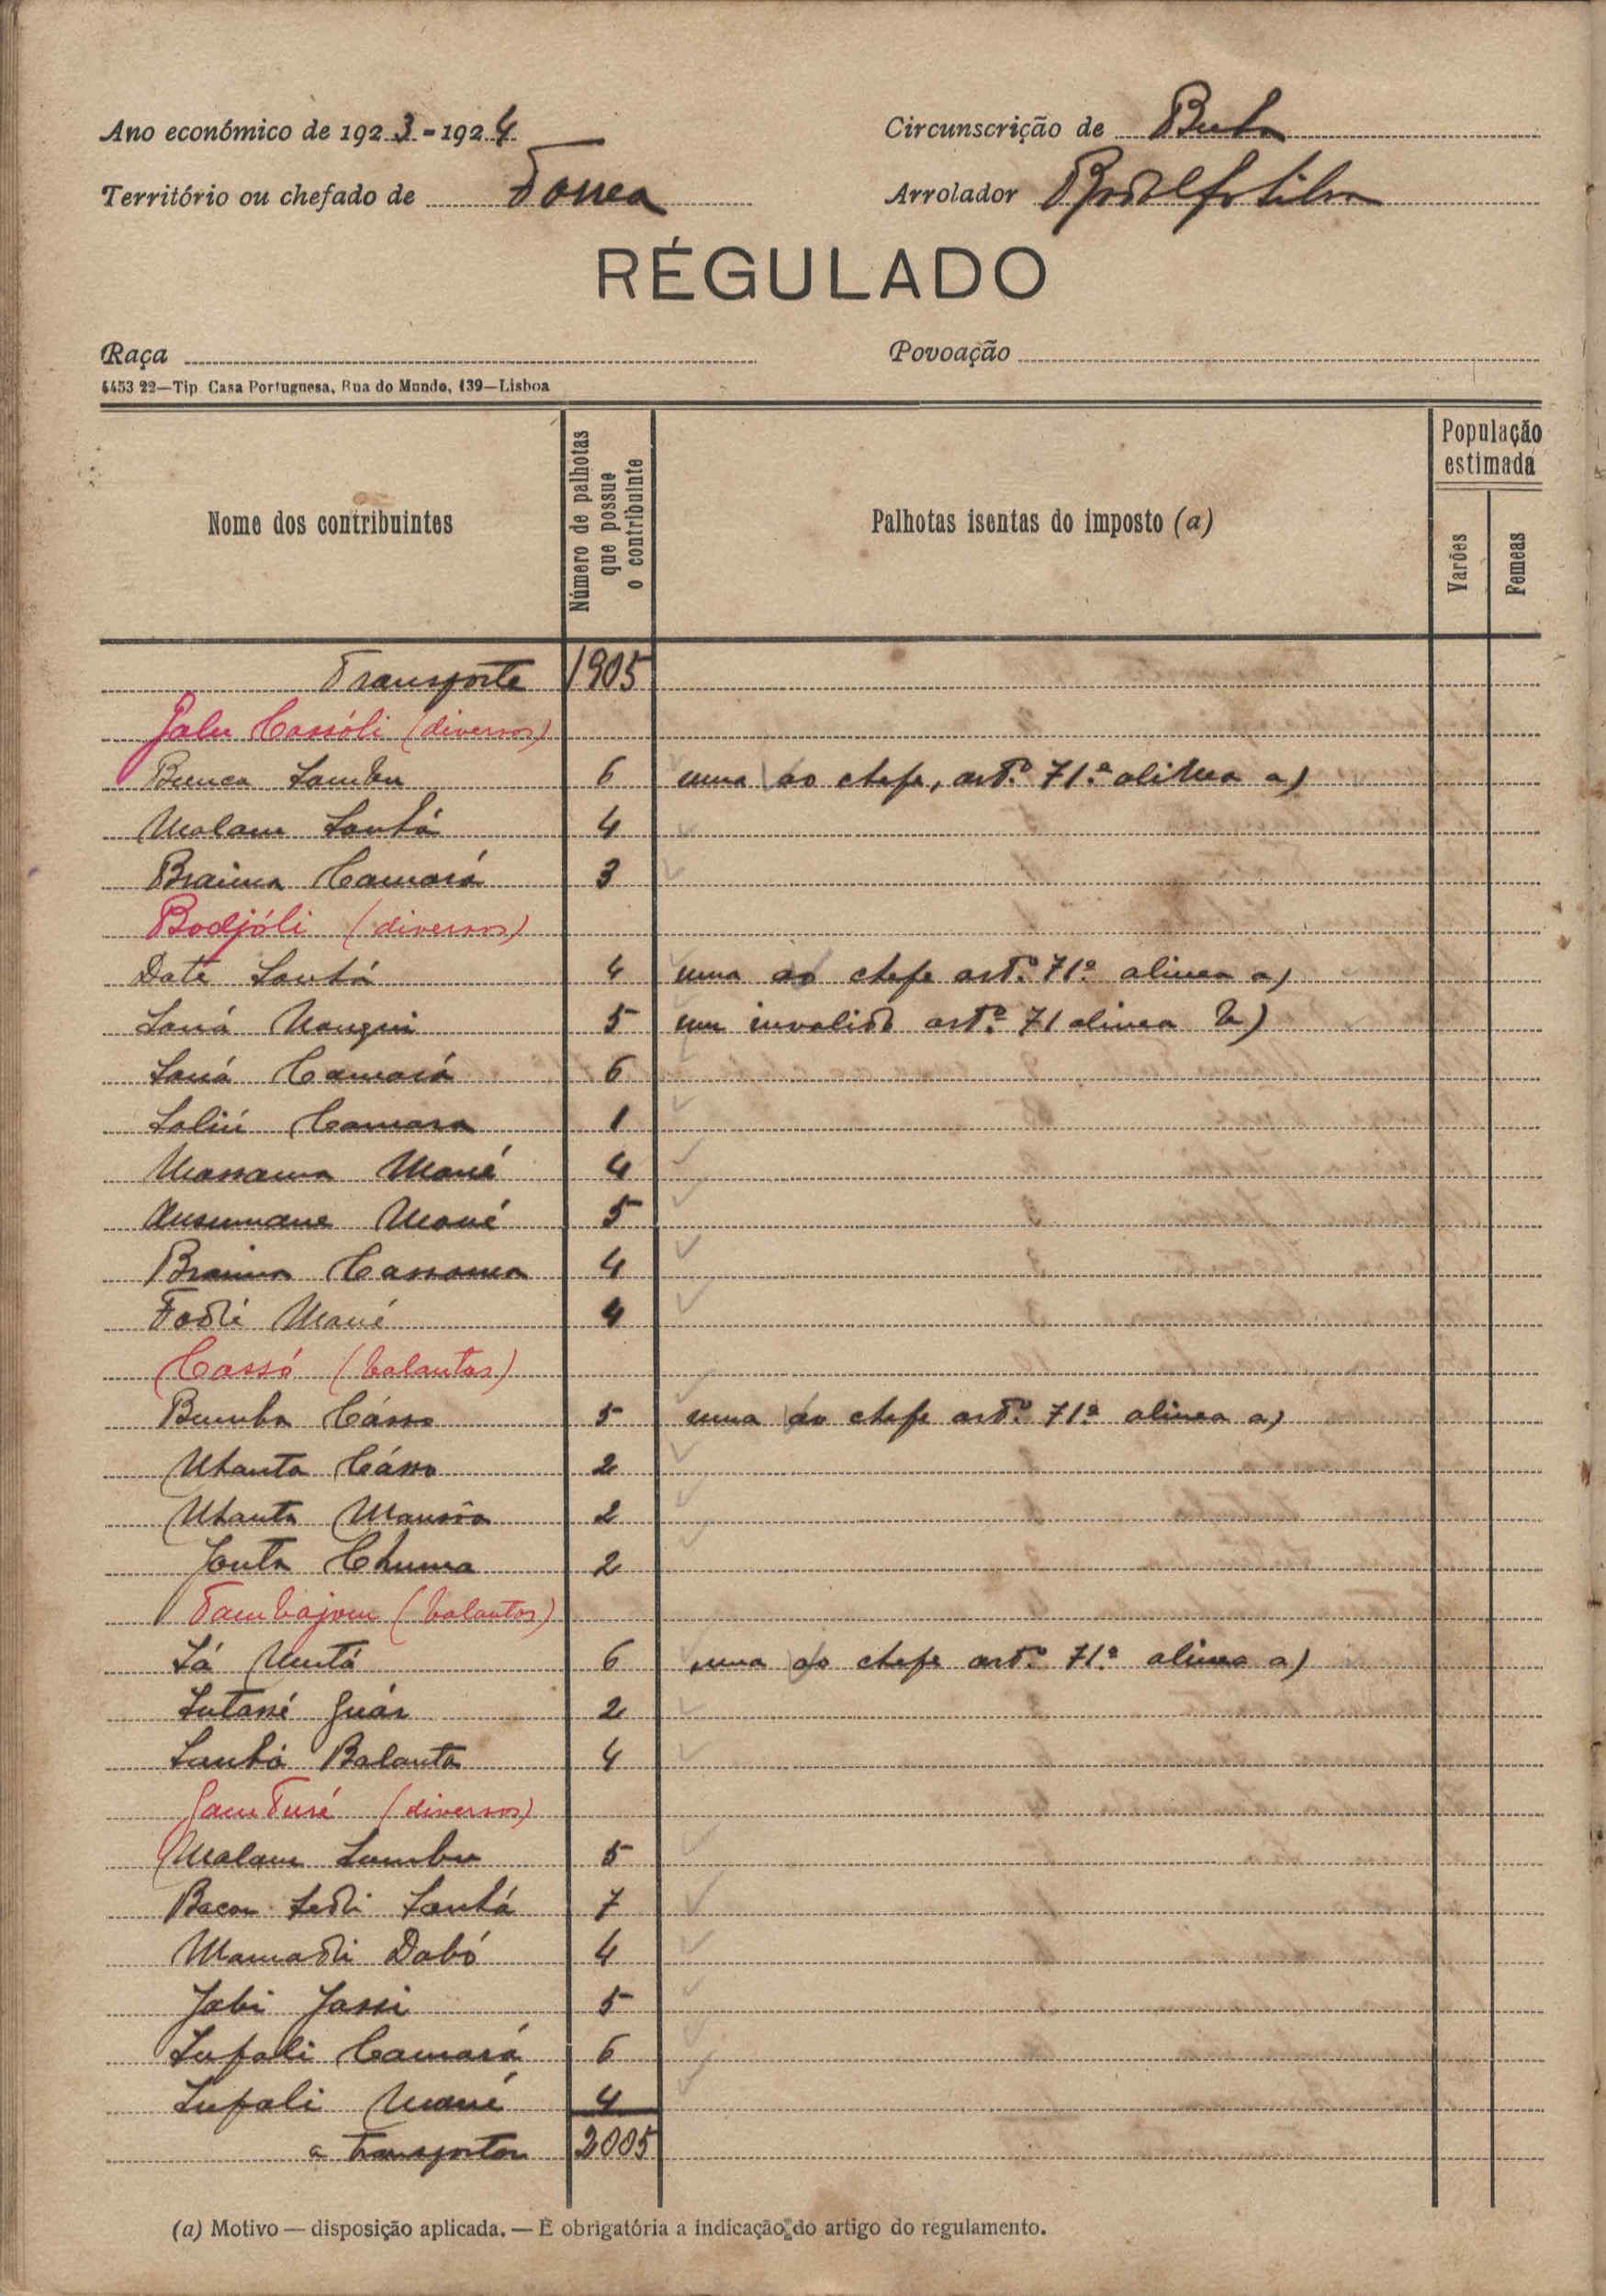 Ano económico de 1923-1924 Circunscrição de Buba
Território ou chefado de Arrolador Rodolfo Silva
RÉGULADO
Raça Povoação
4453 22—Tip. Casa Portuguesa, Rua do Mundo, 139—Lisboa
Nome dos contribuintes Número de palhotas que possue o contribuinte Palhotas isentas do imposto (a) População estimada
Varões Femeas
Transporte 1905
(diversos)
Sambu 6 uma ao chefe, artº. 71.ª alinea a)
Malam Sanhá 4
Braima Camará 3
Bodjóli (diversos)
Daté Sanhá 4 uma ao chefe artº. 71º alinea a)
Saná 5 um invalido artº. 71 alinea b)
Saná Camará 6
Saliú Camara 1
Massama Mané 4
Ansumane Mané 5
Braima Cassama 4
Fodé Mané 4
Cassó (balantas)
Bumba Cásso 5 uma ao chefe artº. 71ª alinea a)
Uhanta Cásso 2
Uhanta Mansôa 2
Chuma 2
Tambajom (balantas)
Sá 6 uma ao chefe artº. 71.ª alinea a)
2
Sanhá Balanta 4
Jam Turé (diversos)
Malam Sambu 5
Bacar Sedi Sanhá 7
Mamadi Dabó 4
Jabi Jassi 5
Lufali Camará 6
Lufali Mané 4
a transportar 2005
(a) Motivo — disposição aplicada. — É obrigatória a indicação do artigo do regulamento.